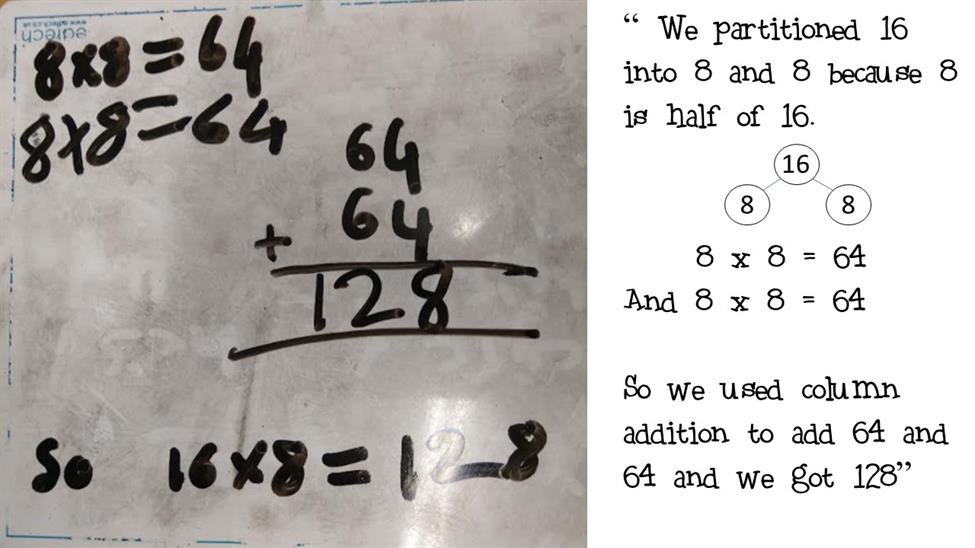 www.edtech.co.uk
edtech
8x8=64
8x8=64
64
64
+
128
So 16x8=128
“ We partitioned 16
into 8 and 8 because 8
is half of 16.
16
8 8
8 x 8 = 64
And 8 x 8 = 64
So we used column
addition to add 64 and
64 and we got 128”